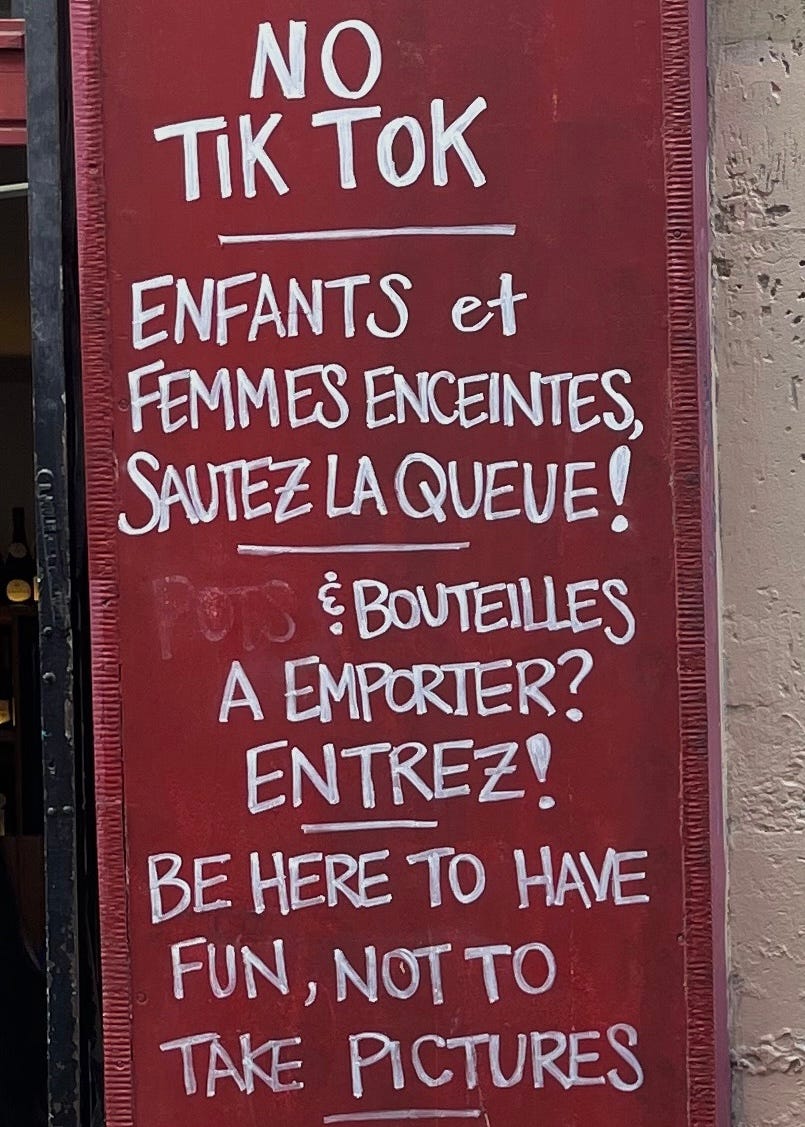 NO
TIK TOK
ENFANTS et
FEMMES ENCEINTES,
SAUTEZ LA QUEUE!
POTS & BOUTEILLES
A EMPORTER?
ENTREZ!
BE HERE TO HAVE
FUN, NOT TO
TAKE PICTURES